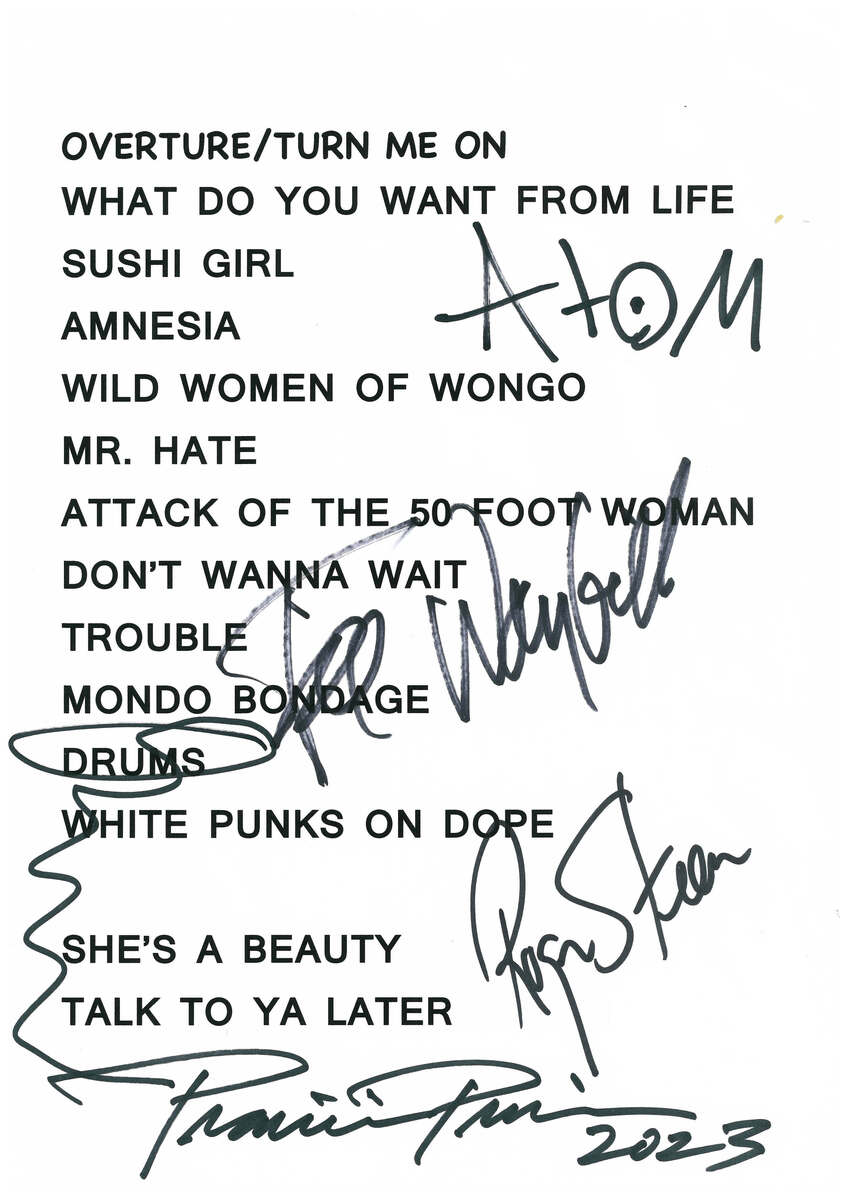 OVERTURE/TURN ME ON
WHAT DO YOU WANT FROM LIFE
SUSHI GIRL
ATOM
AMNESIA
WILD WOMEN OF WONGO
MR. HATE
ATTACK OF THE 50 FOOT WOMAN
DON'T WANNA WAIT
Fee Waybill
TROUBLE
MONDO BONDAGE
DRUMS
WHITE PUNKS ON DOPE
Roger Steen
SHE'S A BEAUTY
TALK TO YA LATER
Prairie Prince
2023